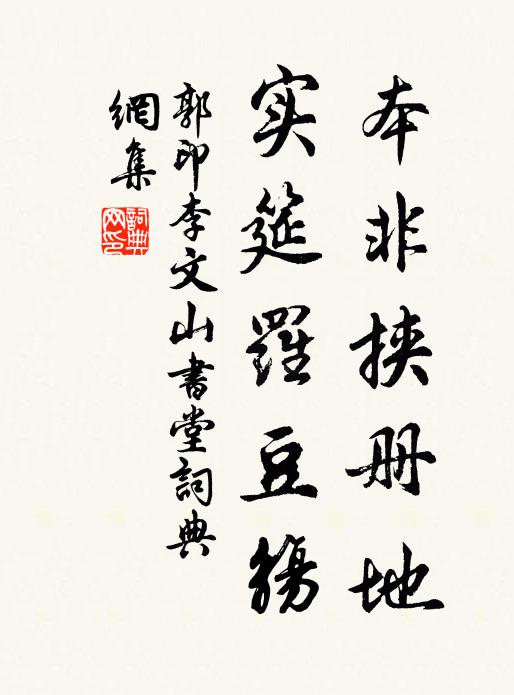 本非挟册地
实筵羅豆觴
郭印李文山書堂詞典
網集
詞典
网印